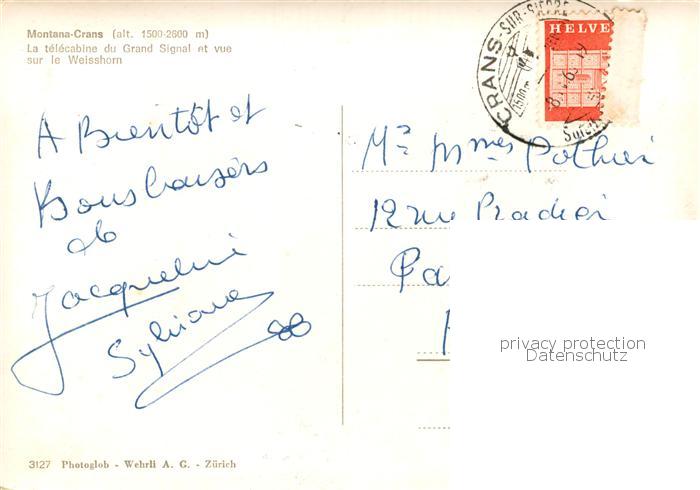 Montana-Crans (alt. 1500-2600 m)
La télécabine du Grand Signal et vue
sur le Weisshorn
A Bientôt et
Bons baisers
de
Jacqueline
Sylviane
3127 Photoglob - Wehrli A. G. - Zürich
CRANS-SUR-SIERRE
1500m
HELVE
Mr Mmes Pothier
12 rue Pradier
Pa
privacy protection
Datenschutz